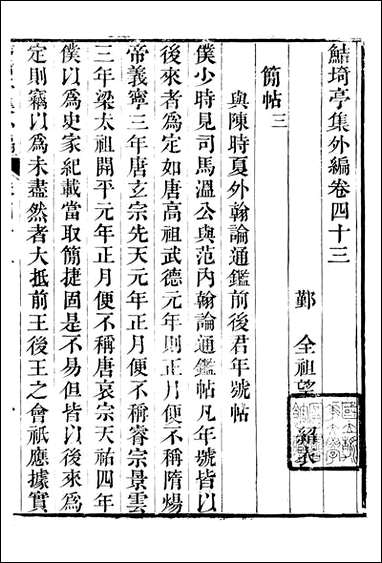 鮚埼亭集外編卷四十三
鄞　全祖望　紹衣
簡帖三
與陳時夏外翰論通鑑前後君年號帖
僕少時見司馬溫公與范內翰論通鑑帖凡年號皆以
後來者爲定如唐高祖武德元年則正月便不稱隋煬
帝義寧三年唐玄宗先天元年正月便不稱睿宗景雲
三年梁太祖開平元年正月便不稱唐哀宗天祐四年
僕以爲史家紀載當取簡捷固是不易但皆以後來爲
定則竊以爲未盡然者大抵前王後王之會祇應據實